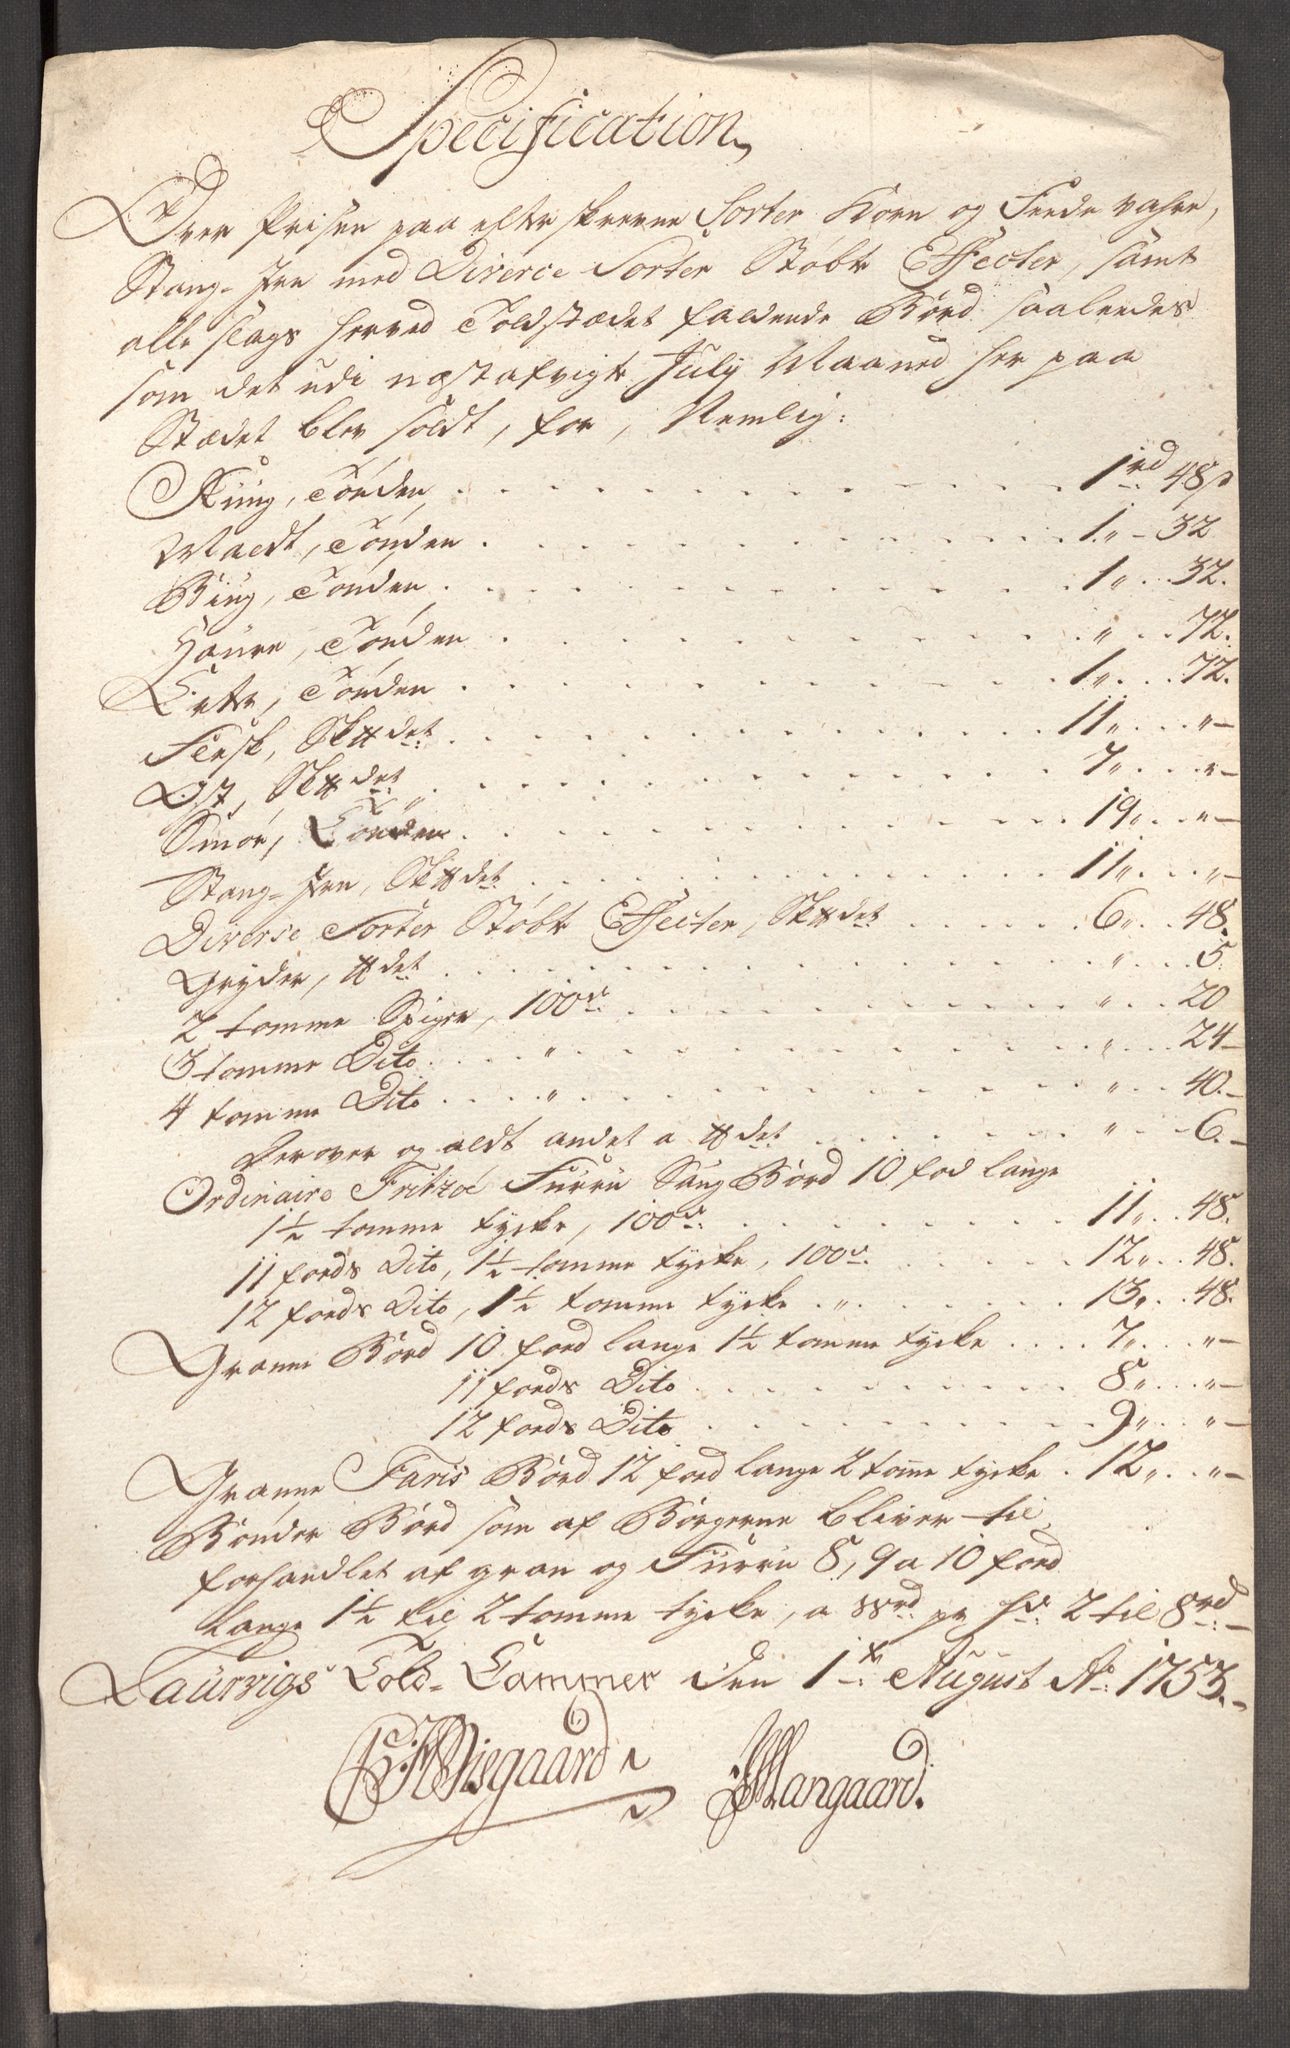 Specification
Over Prisen paa efterskrevne Sorter Korn og Feede vahre,
Stang-Jern med Diverce Sorter Støbte Effecter, samt
alle slags herved Toldstædet faldende Bord saaleedes
som det udi næst afvigte July Maaned her paa
Stædet blev soldt, for, Nemlig:
Rüug, Tönden . . . 1 rd 48 s
Maldt, Tönden . . . 1 „ - 32
Biug, Tönden . . . 1 „ . . 32.
Haure, Tönden . . . „ . . 72.
Erter, Tönden . . . 1 „ . . 72.
Flesk, Sk℔det . . . 11 „ . . „ -
Ost, Sk℔det . . . 7 „ . . „ -
Smör, Tönden . . . 19 „ . . „ -
Stang-Jern, Sk℔det . . . 11 „ . . „ -
Diverse Sorter Støbte Effecter, Sk℔det . . . 6 „ . . 48.
Gryder, ℔det . . . „ . . 5.
2 tomme Spiger, 100de . . . „ . . 20
3 tomme Dito . . „ . . . „ . . 24 -
4 tomme Dito . . „ . . . „ . . 40. -
Derover og aldt andet a ℔det . . . „ . . 6. -
Ordinaire Fritzöe Furru Saug Bord 10 fod lange
1½ tomme tycke, 100de . . . 11 „ . . 48.
11 fords Dito, 1½ tomme tycke, 100de . . . 12 „ . . 48.
12 fords Dito, 1½ tomme tycke . „ . . . 13 „ . . 48.
Granne Bord 10 ford lange 1½ tomme tycke . . . 7 „ . . „ -
11 fords Dito . . . 8 „ . . „ -
12 fords Dito . . . 9 „ . . „ -
Granne Faris Bord 12 ford lange 2 tome tycke . 12 „ . . „ -
Bönder Bord som af Borgerne bliver til
forhandlet af gran og Furru 8, 9 a 10 ford
lange 1½ til 2 tomme tycke, a pr 2 til 8 rd -
Laurvigs Told-Cammer den 1te August Ao 1753. -
Wisgaard
Mangaard.